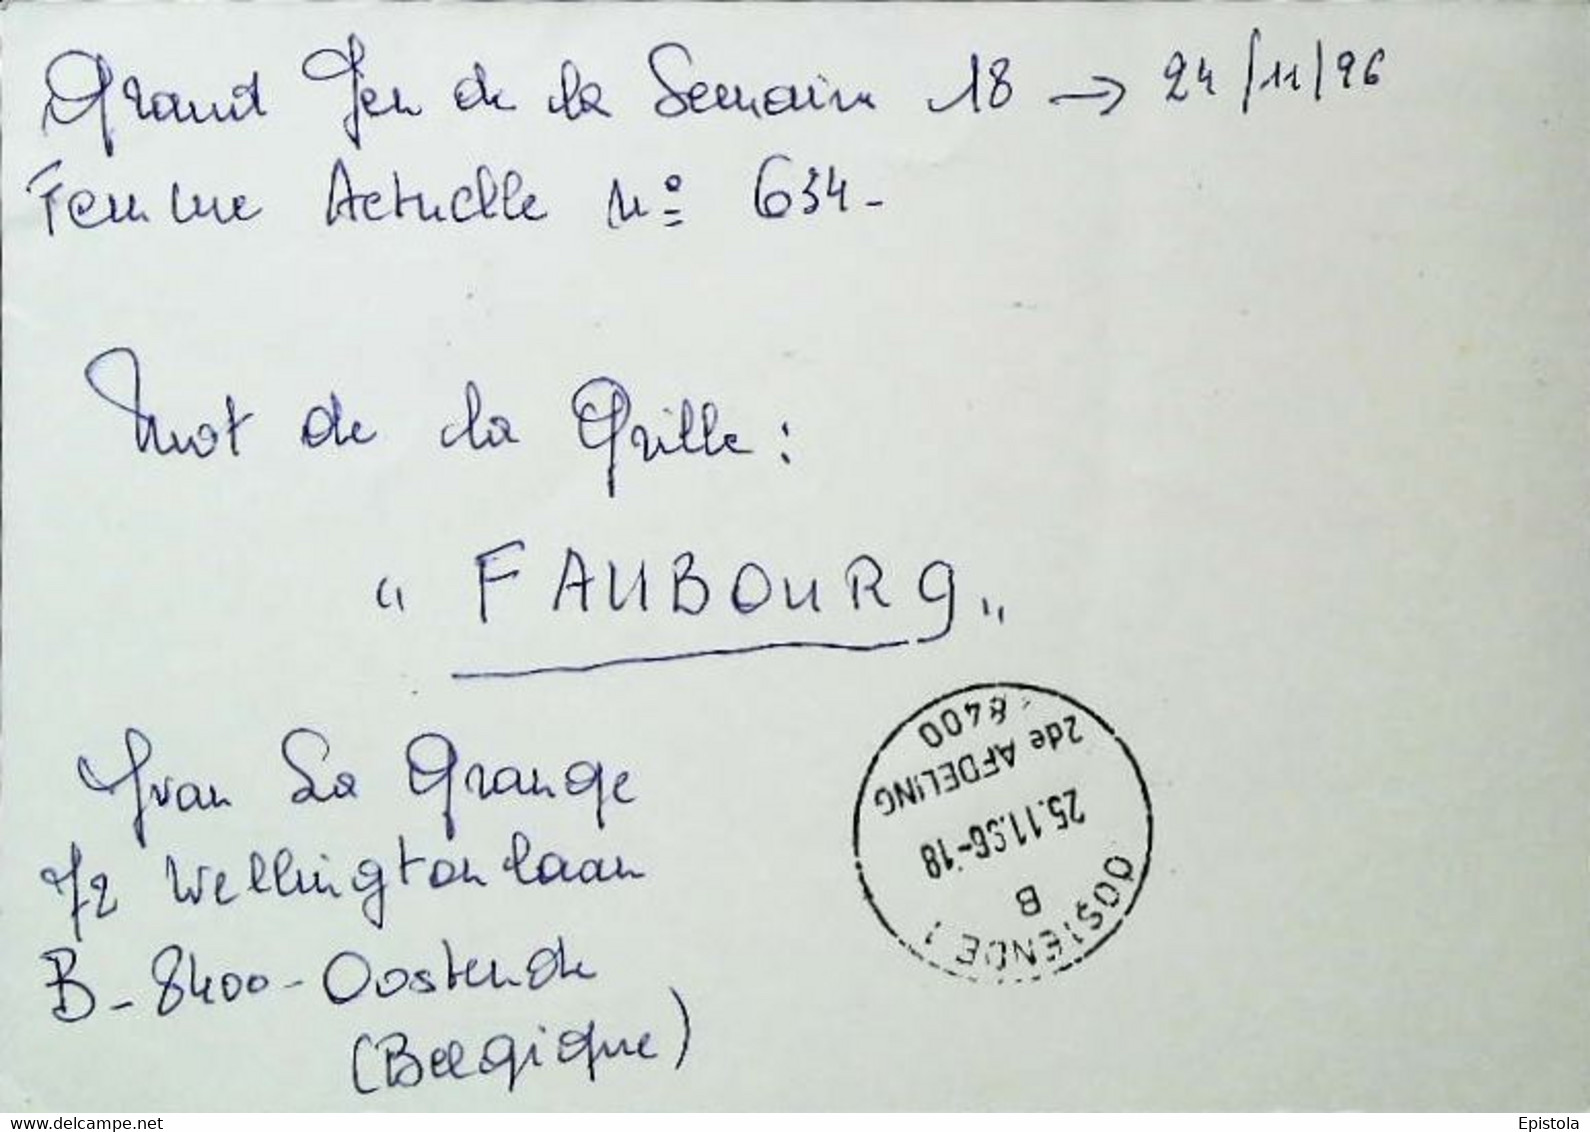 Grand Jeu de la Semaine 18 → 24/11/96
Femme Actuelle n° 634-
Mot de la Grille :
"FAUBOURG"
Yvan La Grange
72 Wellingtonlaan
B-8400-Oostende
(Belgique)
8400
2de AFDELING
25.11.96-18
B
OOSTENDE 1
delcampe.net
Epistola